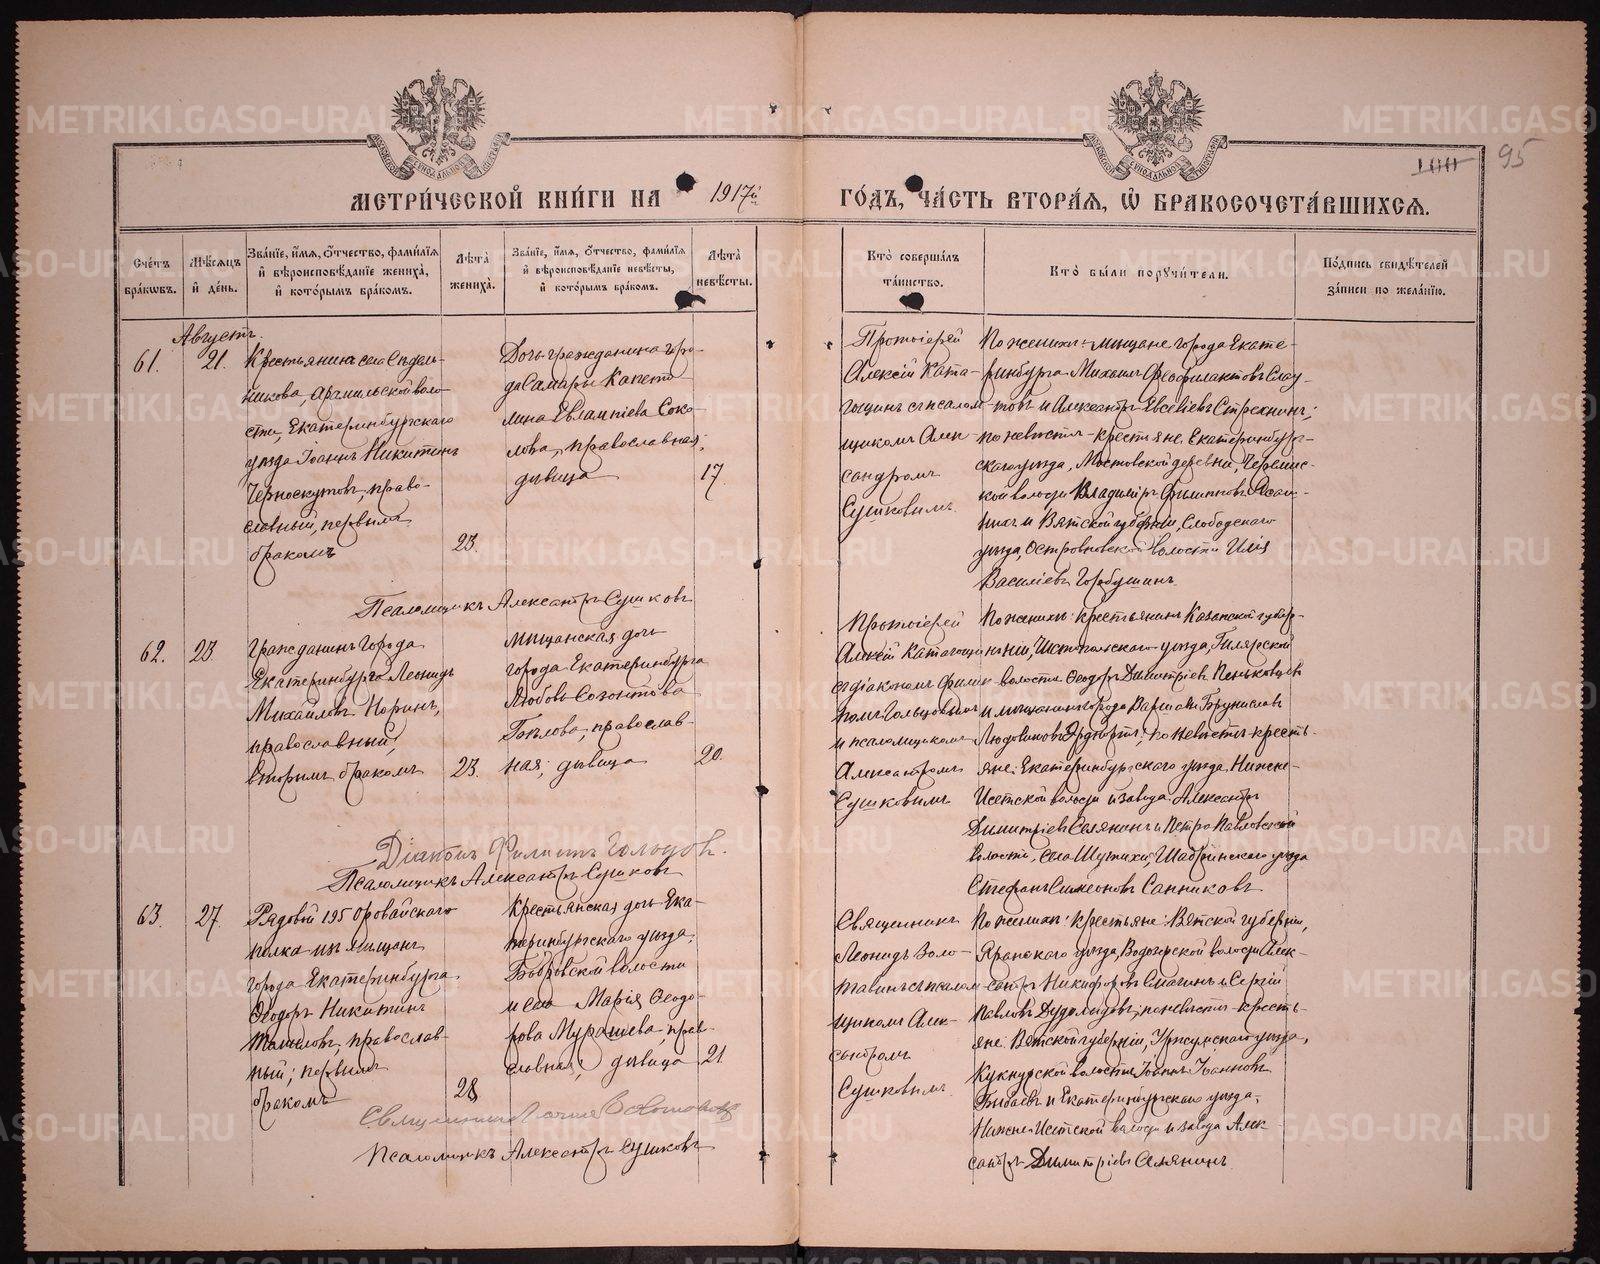 МЕТРИ́ЧЕСКОЙ КНИ́ГИ НА 1917й ГО́ДЪ, ЧА́СТЬ ВТОРА́Я, Ѡ БРАКОСОЧЕТА́ВШИХСЯ.
100 95
Сче́тъ бра́кѡвъ.
Мѣ́сяцъ и де́нь.
Зва́нїе, и́мя, ѻ́тчество, фами́лїя
и вѣроисповѣ́данїе жениха̀,
и кото́рымъ бра́комъ.
Лѣ́та жениха̀.
Зва́нїе, и́мя, ѻ́тчество, фами́лїя
и вѣроисповѣ́данїе невѣ́сты,
и кото́рымъ бра́комъ.
Лѣ́та невѣ́сты.
Кто̀ соверша́лъ
та́инство.
Кто̀ бы́ли порꙋчи́тели.
По́дпись свидѣ́телей
за́писи по жела́нїю.
Августъ
61.
21.
Крестьянинъ села Сѣдель-
никова, Арамильской воло-
сти, Екатеринбургскаго
уѣзда Іоаннъ Никитинъ
Черноскутовъ, право-
славный, первымъ
бракомъ
23.
Дочь гражданина горо-
да Самары Капето-
лина Евлампіева Соко-
лова, православная;
дѣвица
17.
Протоіерей
Алексій Ката-
гощинъ съ псалом-
щикомъ Алек-
сандромъ
Сушковымъ
По женихѣ: мѣщане города Екате-
ринбурга Михаилъ Феофилактовъ
товъ и Александръ Евсевіевъ Стрехнинъ;
по невѣстѣ - крестьяне Екатеринбург-
скаго уѣзда, Мостовской деревни,
кой волости Владиміръ Филипповъ
и Вятской губерніи, Слободскаго
уѣзда, Островновской волости Илія
Василіевъ Горобушинъ
Псаломщикъ Александръ Сушковъ
62.
23.
Гражданинъ города
Екатеринбурга Леонидъ
Михайловъ Норинъ,
православный;
вторымъ бракомъ
23.
Мѣщанская дочь
города Екатеринбурга
Любовь Созонтова
православ-
ная; дѣвица
20.
Протоіерей
Алексій Катагощинъ
съ діакономъ Филип-
помъ Гольцовымъ
и псаломщикомъ
Александромъ
Сушковымъ
По женихѣ: крестьянинъ Казанской губер-
ніи, Чистопольскаго уѣзда,
волости Ѳеодоръ Димитріевъ
и мѣщанинъ города Варшавы Брунислав
Людвиковъ по невѣстѣ - кресть-
яне: Екатеринбургскаго уѣзда, Нижне-
Исетской волости и завода Александръ
Димитріевъ Селянинъ и Петро-Павловской
волости, села Шутихи, Шадринскаго уѣзда
Стефанъ Симеоновъ Санниковъ
Діаконъ Филиппъ Гольцовъ.
Псаломщикъ Александръ Сушковъ
63.
27.
Рядовой 195 Оровайскаго
полка изъ мѣщанъ
города Екатеринбурга
Ѳеодоръ Никитинъ
православ-
ный; первымъ
бракомъ
28
Крестьянская дочь Ека-
теринбургскаго уѣзда,
Бобровской волости
и села Марія Ѳеодо-
рова Мурашева, прав-
славная; дѣвица
21.
Священникъ
Леонидъ Золо-
тавинъ съ псалом-
щикомъ Алек-
сандромъ
Сушковымъ
По женихѣ: крестьяне: Вятской губерніи,
Яранскаго уѣзда, Водозерской волости Алек-
сандръ Никифоровъ Смагинъ и Сергій
Павловъ по невѣстѣ - кресть-
яне: Вятской губерніи, Уржумскаго уѣзда,
Кукнурской волости Іоаннъ Іоанновъ
Бибаевъ и Екатеринбургскаго уѣзда,
Нижне-Исетской волости и завода Алек-
сандръ Димитріевъ Селянинъ
Священникъ Леонидъ Золотавинъ
Псаломщикъ Александръ Сушковъ
METRIKI.GASO-URAL.RU